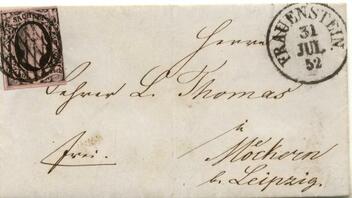 Herrn
FRAUENSTEIN.
31
JUL.
52
Lehrer L. Thomas
in
frei.
Möckern
b. Leipzig.